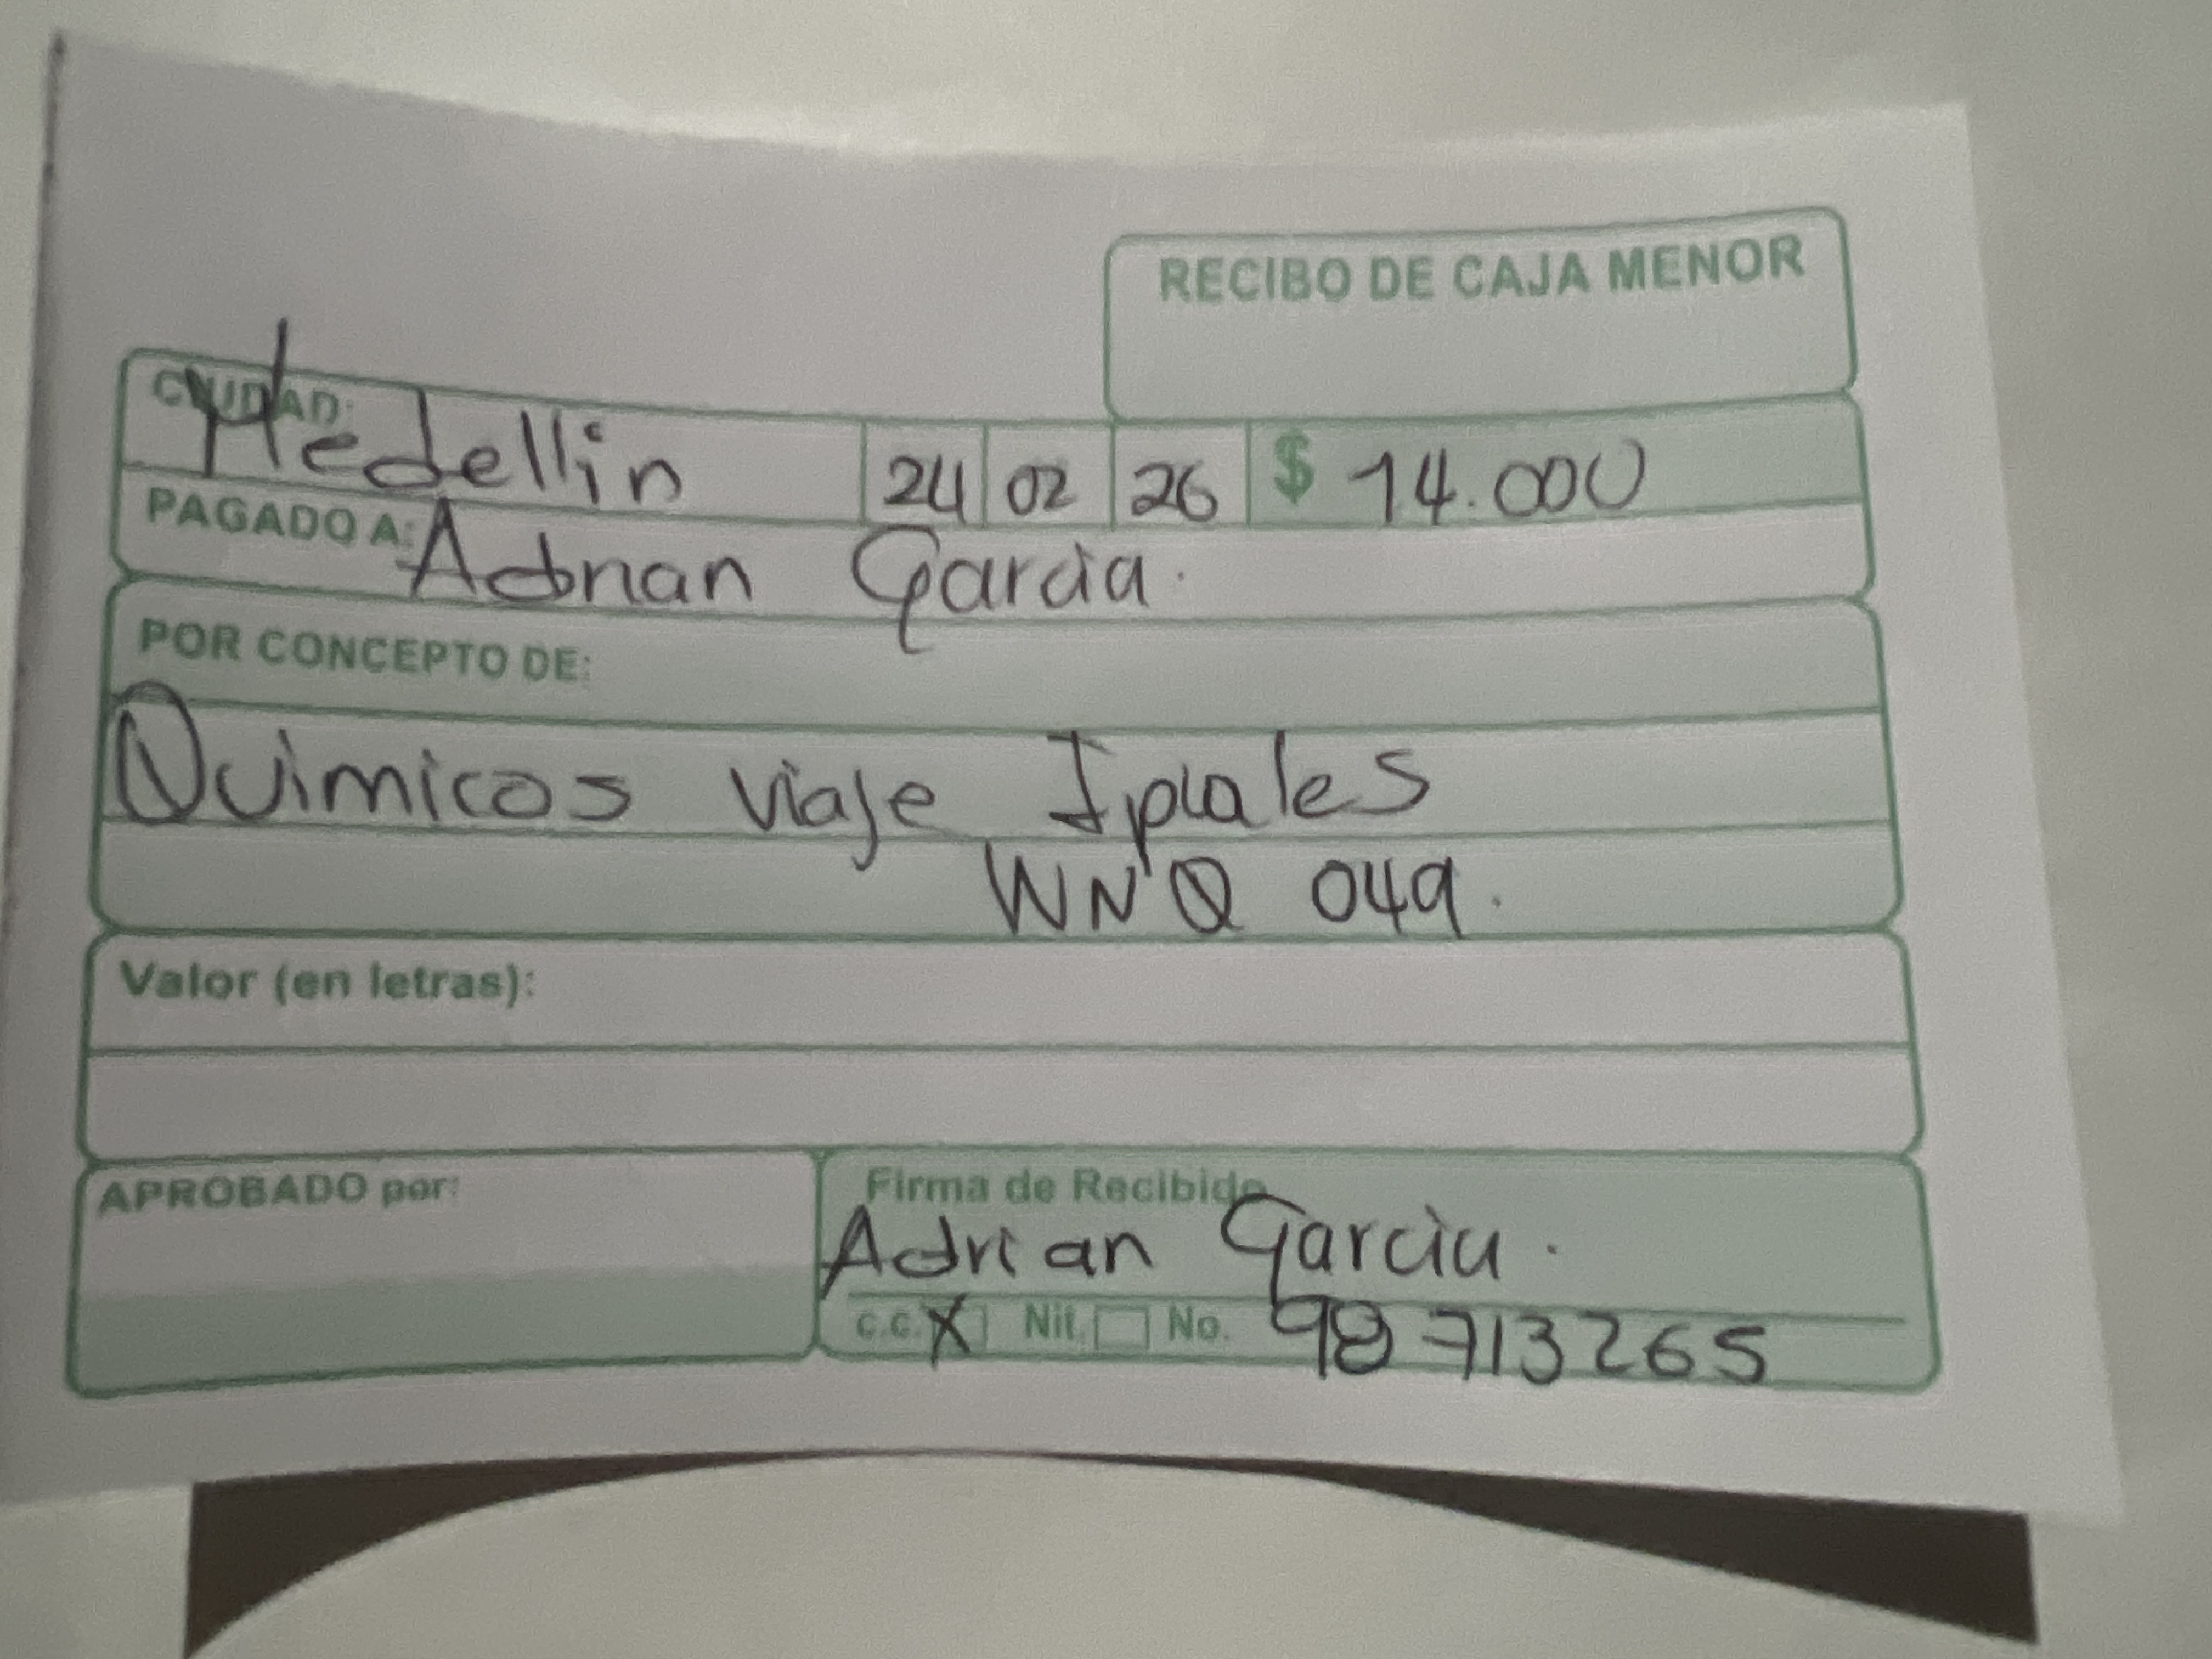 RECIBO DE CAJA MENOR
CIUDAD: Medellin 24 02 26 $ 14.000
PAGADO A: Adrian Garcia.
POR CONCEPTO DE:
Quimicos viaje Ipiales
WNQ 049.
Valor (en letras):
APROBADO por:
Firma de Recibido
Adrian Garcia.
C.C. X Nit. No. 98713265